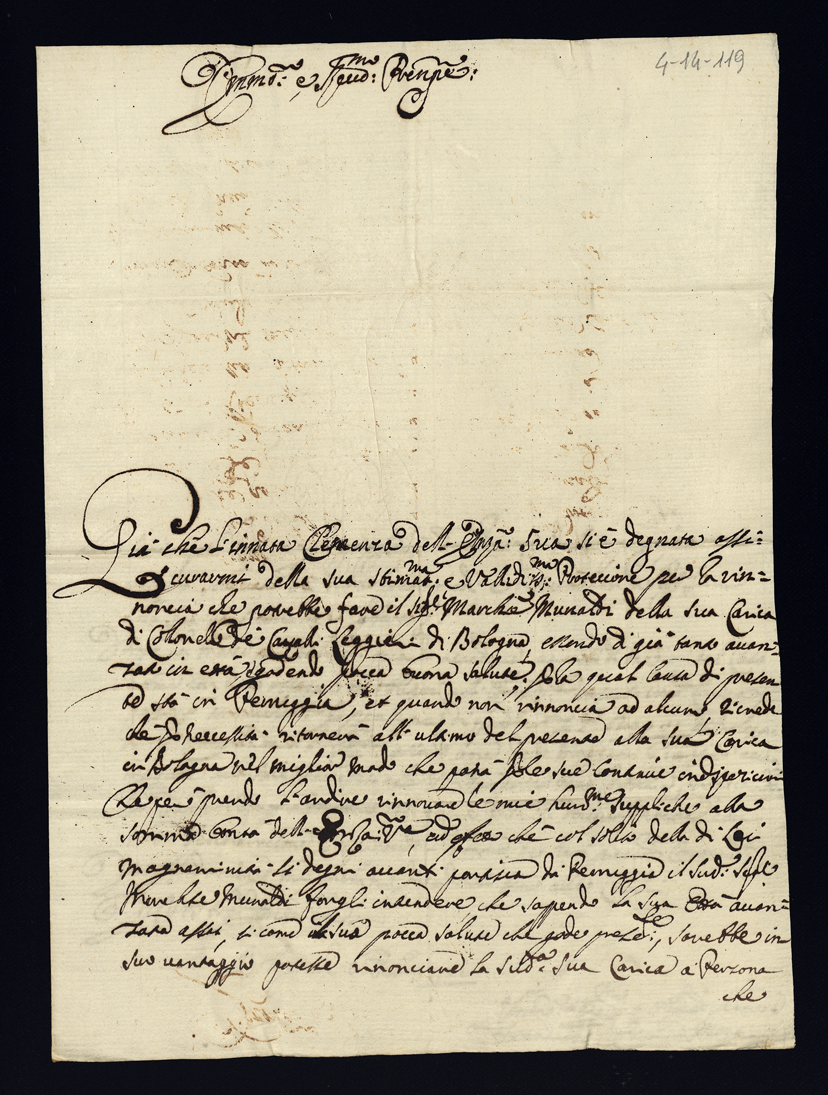 4-14-119
Emmo: e, Revd:mo Prenpe:
Già che l'innata Clemenza dell' Emza: Sua si è degnata assi=
curarmi della sua stimat:ma e Vallidis:ma Protecione per la rin=
noncia che potrebbe fare il Sigr Marche Munaldi della sua Carica
di Colonello de Cavalli Leggieri di Bologna, essendo di già tanto avan=
zato in ettà godendo pocca buona salute, per la qual causa di presen
te stà in Peruggia, et quando non rinnoncia ad alcuno si crede
che per neccessità ritornerà all' ultimo del presente alla sua Carica
in Bologna nel miglior modo che potrà per le sue continue indisposicioni
che però prendo l'ardire rinnovare le mie humme suppliche alla
somma bontà dell' Emza Va, ad effeto che col solito della di Lei
magnanimità si degni avanti partisca da Peruggia il sud: Sigr
Marchse Munaldi fargli intendere che sapendo la sua Ettà avan=
zata assai, si come la sua pocca salute che gode preste, sarebbe in
suo vantaggio potesse rinonciare la sudta: sua Carica à Perzona
che